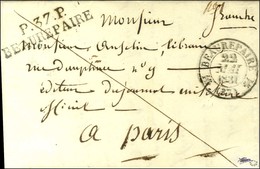 P.37.P.
BEAUREPAIRE
Monsieur
Monsieur Anselin, libraire
rue dauphine n° 9
éditeur du journal militaire
officiel
a paris
BEAUREPAIRE
22